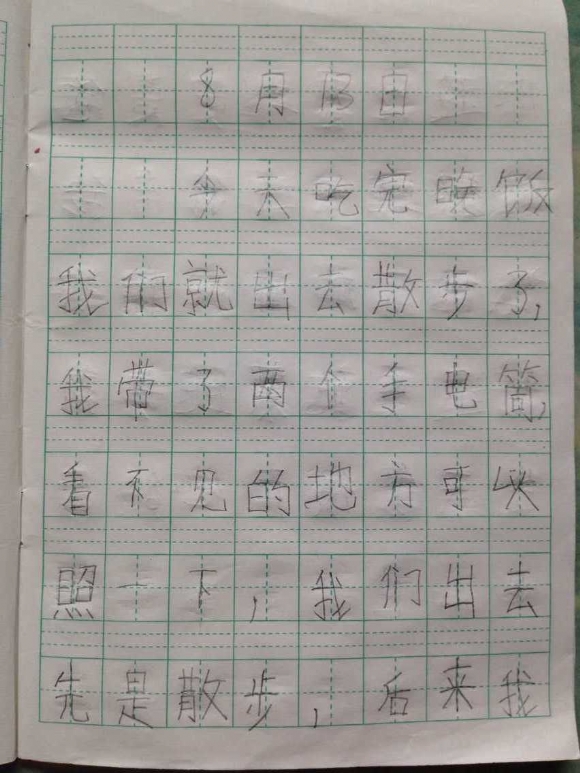 8月13日
今天吃完晚饭
我们就出去散步了,
我带了两个手电筒,
看不见的地方可以
照一下,我们出去
先是散步,后来我